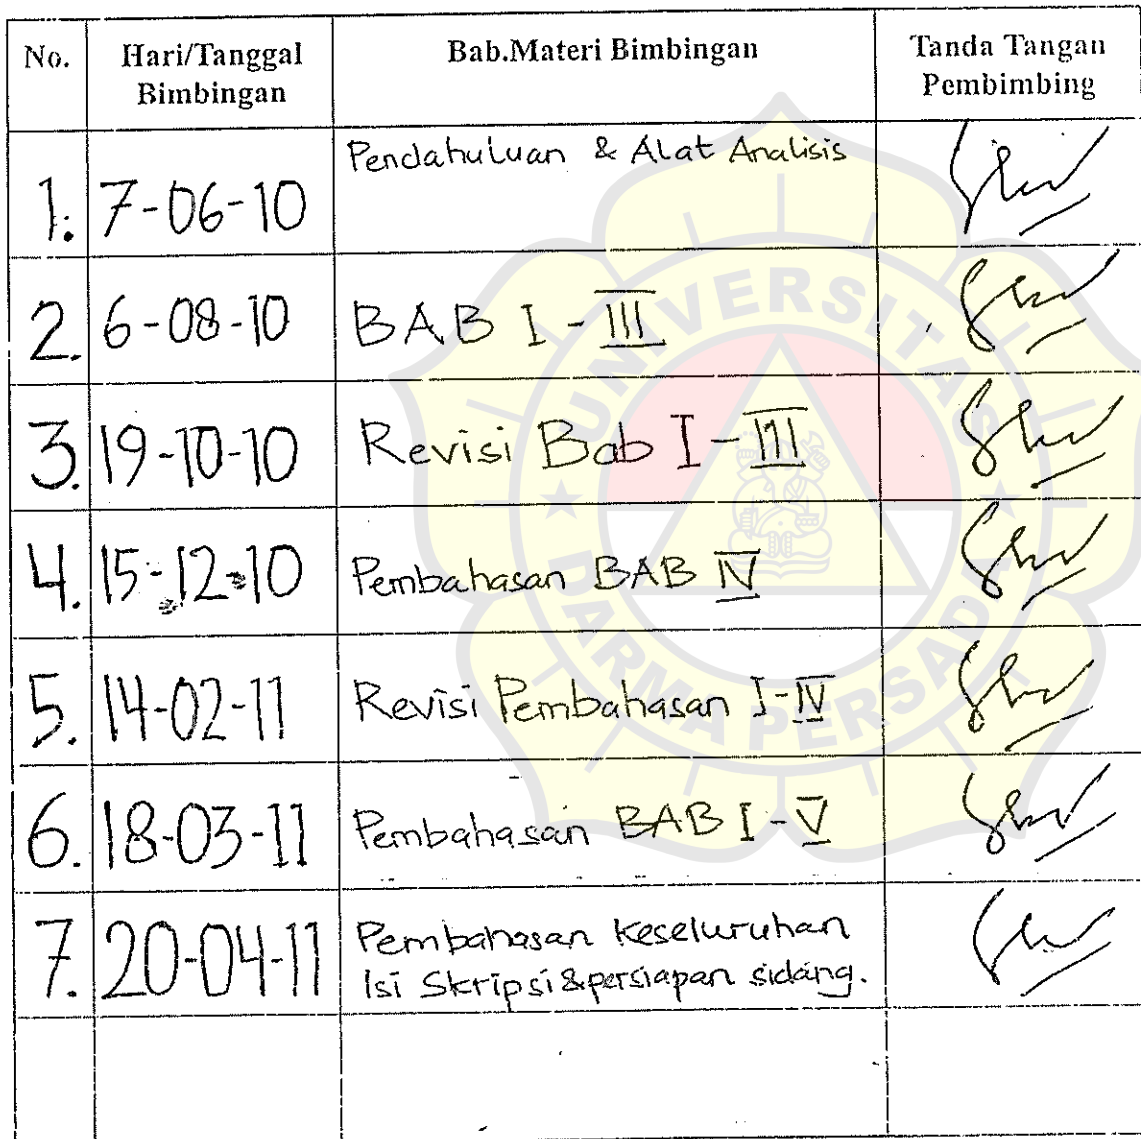 No. Hari/Tanggal Bab.Materi Bimbingan Tanda Tangan
Bimbingan Pembimbing
1. 7-06-10 Pendahuluan & Alat Analisis
2. 6-08-10 BAB I - III
3. 19-10-10 Revisi Bab I - III
4. 15-12-10 Pembahasan BAB IV
5. 14-02-11 Revisi Pembahasan I-IV
6. 18-03-11 Pembahasan BAB I - V
7. 20-04-11 Pembahasan Keseluruhan
Isi Skripsi & persiapan sidang.
UNIVERSITAS
DARMA PERSADA